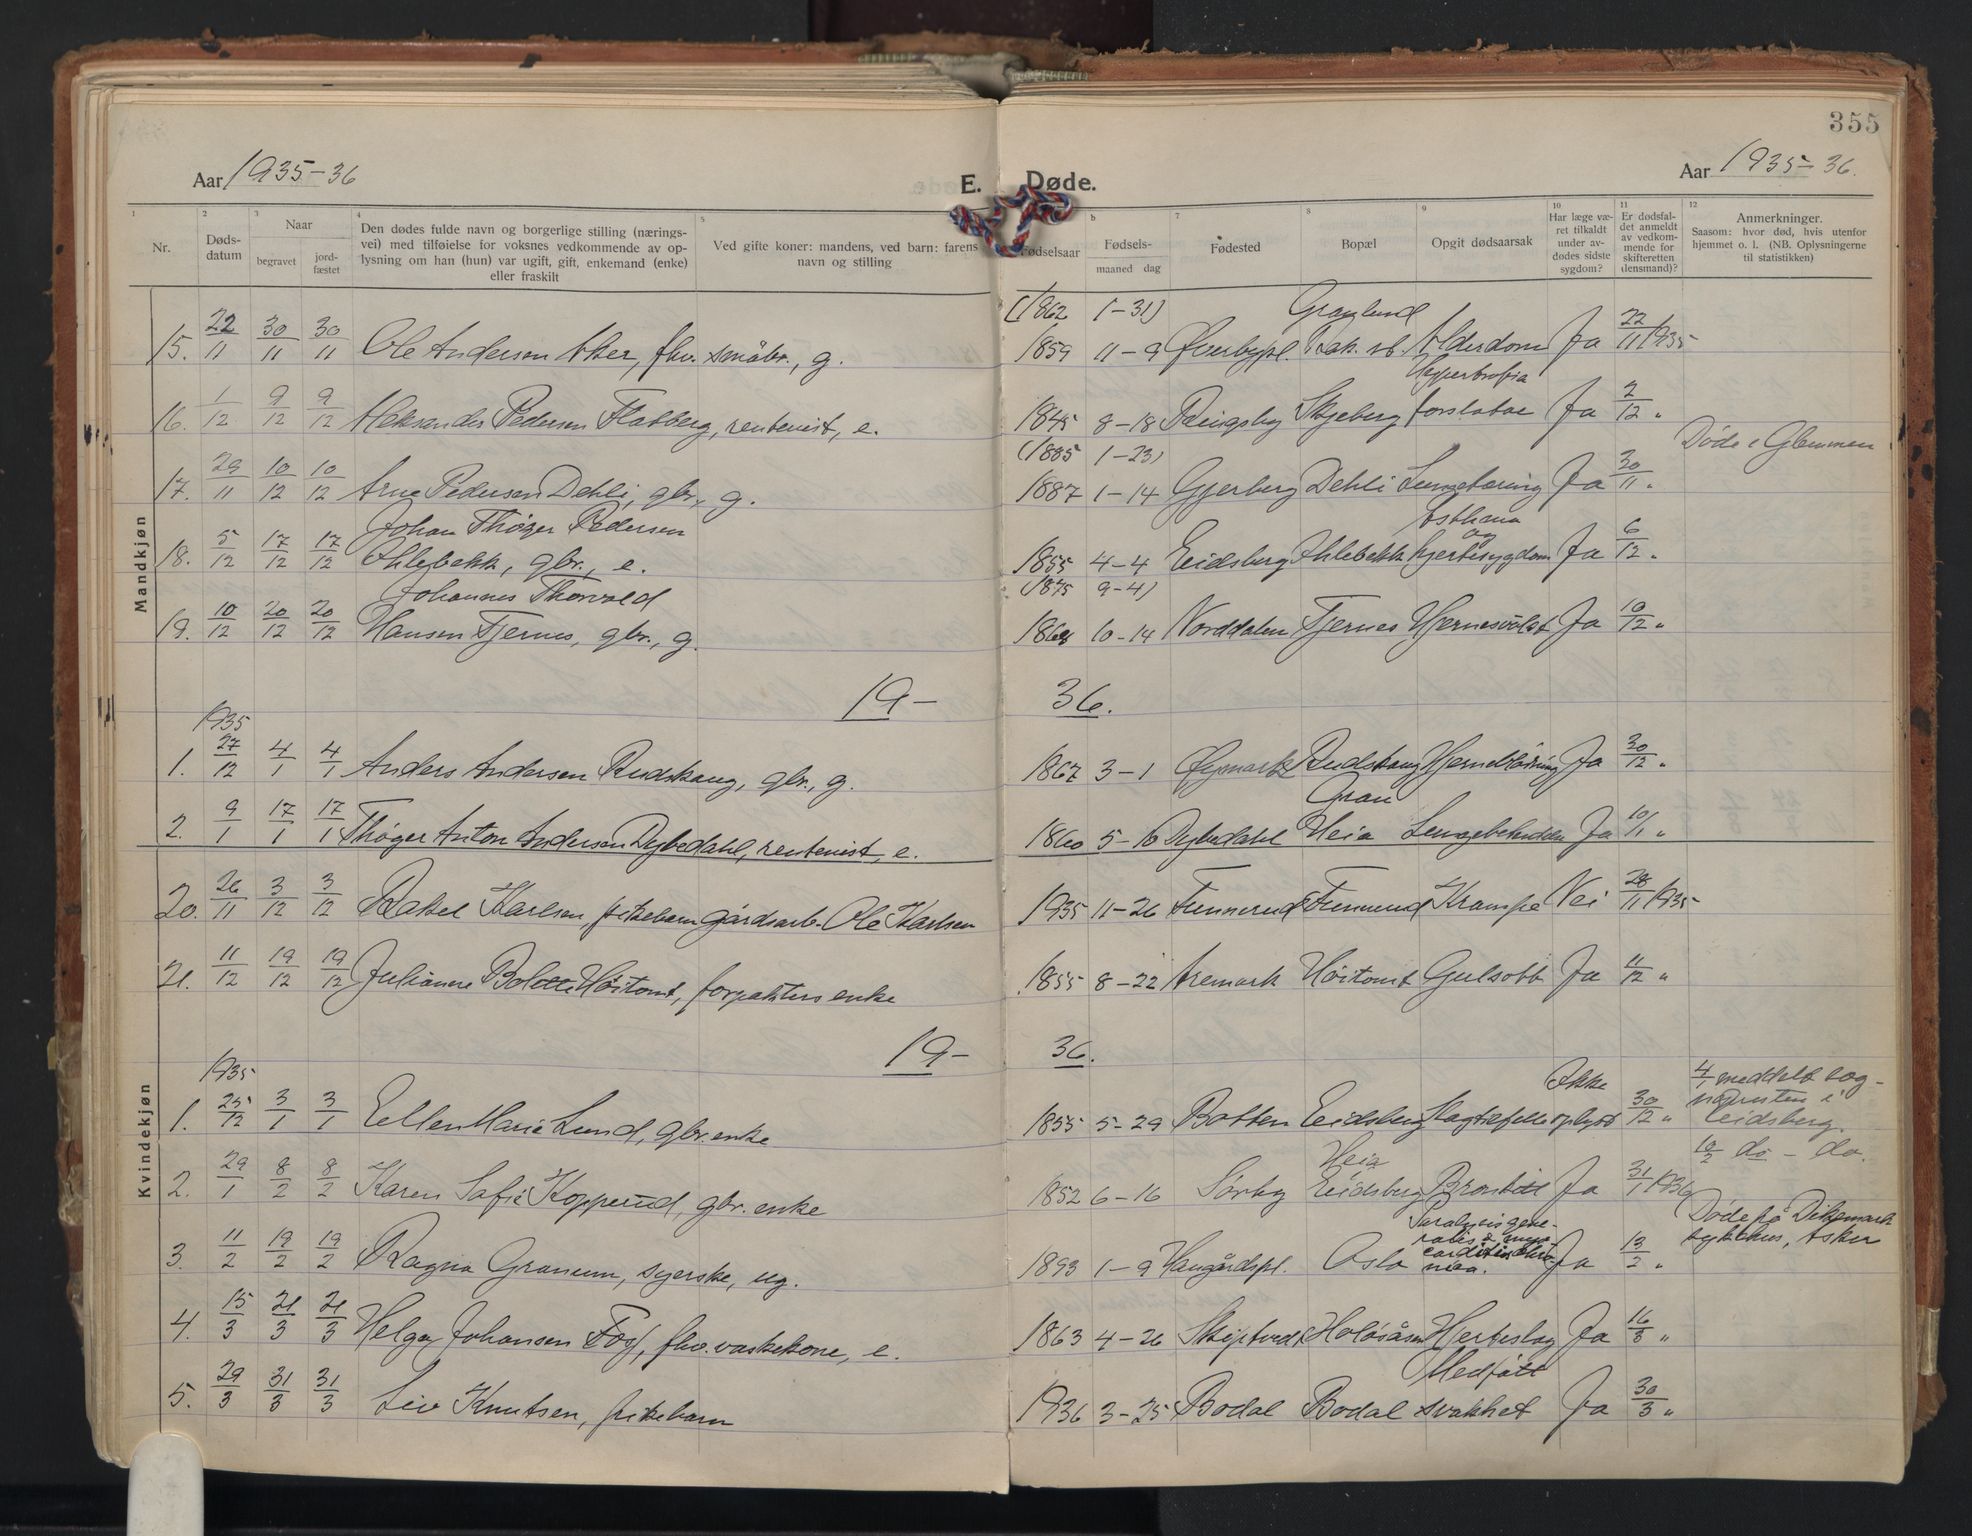 355
Aar 1935-36
E. Døde.
Aar 1935-36.
1 2 3 4 5 b 7 8 9 10 11 12
Nr.
Døds-
datum
Naar
begravet
jord-
fæstet
Den dødes fulde navn og borgerlige stilling (nærings-
vei) med tilføielse for voksnes vedkommende av op-
lysning om han (hun) var ugift, gift, enkemand (enke)
eller fraskilt
Ved gifte koner: mandens, ved barn: farens
navn og stilling
Fødselsaar
Fødsels-
maaned dag
Fødested
Bopæl
Opgit dødsaarsak
Har læge væ-
ret tilkaldt
under av-
dødes sidste
sygdom?
Er dødsfal-
det anmeldt
av vedkom-
mende for
skifteretten
(lensmand)?
Anmerkninger.
Saasom: hvor død, hvis utenfor
hjemmet o. l. (NB. Oplysningerne
til statistikken)
Mandkjøn
(1862 1-31) Granlund
15. 22/11 30/11 30/11 Ole Andersen Aker, fhv. småbr., g. 1859 11-9 Øverbypl. Rak. sk. Alderdom Ja 22/11 1935
Hypertrofia
16. 1/12 9/12 9/12 Aleksander Pedersen Flatberg, rentenist, e. 1845 8-18 Skjeberg Ja 2/12 "
(1885 1-23) Døde i Glemmen
17. 29/11 10/12 10/12 Arne Pedersen Dehli, gbr., g. 1887 1-14 Gjerberg Dehli Lungetæring Ja 30/11 "
Johan Thøger Pedersen Asthma og
18. 5/12 17/12 17/12 Ihlebekk, gbr., e. 1855 4-4 Eidsberg Ihlebekk hjertesygdom Ja 6/12 "
Johannes Thorvald (1875 9-4)
19. 10/12 20/12 20/12 Hansen Tjernes, gbr., g. 1868 10-14 Norddalen Tjernes Hjernesvulst Ja 10/12 "
19- 36.
1935
1. 27/12 4/1 4/1 Anders Andersen Rudskaug, gbr., g. 1867 3-1 Øymark Rudskaug Hjerneblødning Ja 30/12 "
Gran
2. 9/1 17/1 17/1 Thøger Anton Andersen Dybedahl, rentenist, e. 1860 5-16 Dybedahl Heia Lungebetendelse Ja 10/1 "
Kvindekjøn
20. 26/11 3/12 3/12 Rakel Karlsen, pikebarn gårdsarb. Ole Karlsen 1935 11-26 Funnerud Funnerud Krampe Nei 28/11 1935
21. 11/12 19/12 19/12 Julianne Bolette Høitomt, forpakters enke 1855 8-22 Aremark Høitomt Gulsott Ja 11/12 "
19- 36.
1935 Ikke 4/1 meddelt sog-
1. 25/12 3/1 3/1 Ellen Marie Lund, gbr. enke 1855 5-29 Botten Eidsberg Slagtilfelle oplyst 30/12 " nepresten i
Eidsberg.
Heia 10/2 do - do.
2. 29/1 8/2 8/2 Karen Sofie Kopperud, gbr. enke 1852 6-16 Sørby Eidsberg Bronkitt Ja 31/1 1936
Paralysis gene-
ralis & myo-
carditis chro-
nica.
Døde på Dikemark
sykehus, Asker
3. 11/2 19/2 19/2 Ragna Granum, syerske, ug. 1893 1-9 Haugårdspl. Oslo Ja 13/2 "
4. 15/3 21/3 21/3 Helga Johansen Foss, fhv. vaskekone, e. 1863 4-26 Skiptvedt Holøsåsen Herteslag Ja 16/3 "
Medfått
5. 29/3 31/3 31/3 Liv Knutsen, pikebarn 1936 3-25 Bodal Bodal svakhet Ja 30/3 "